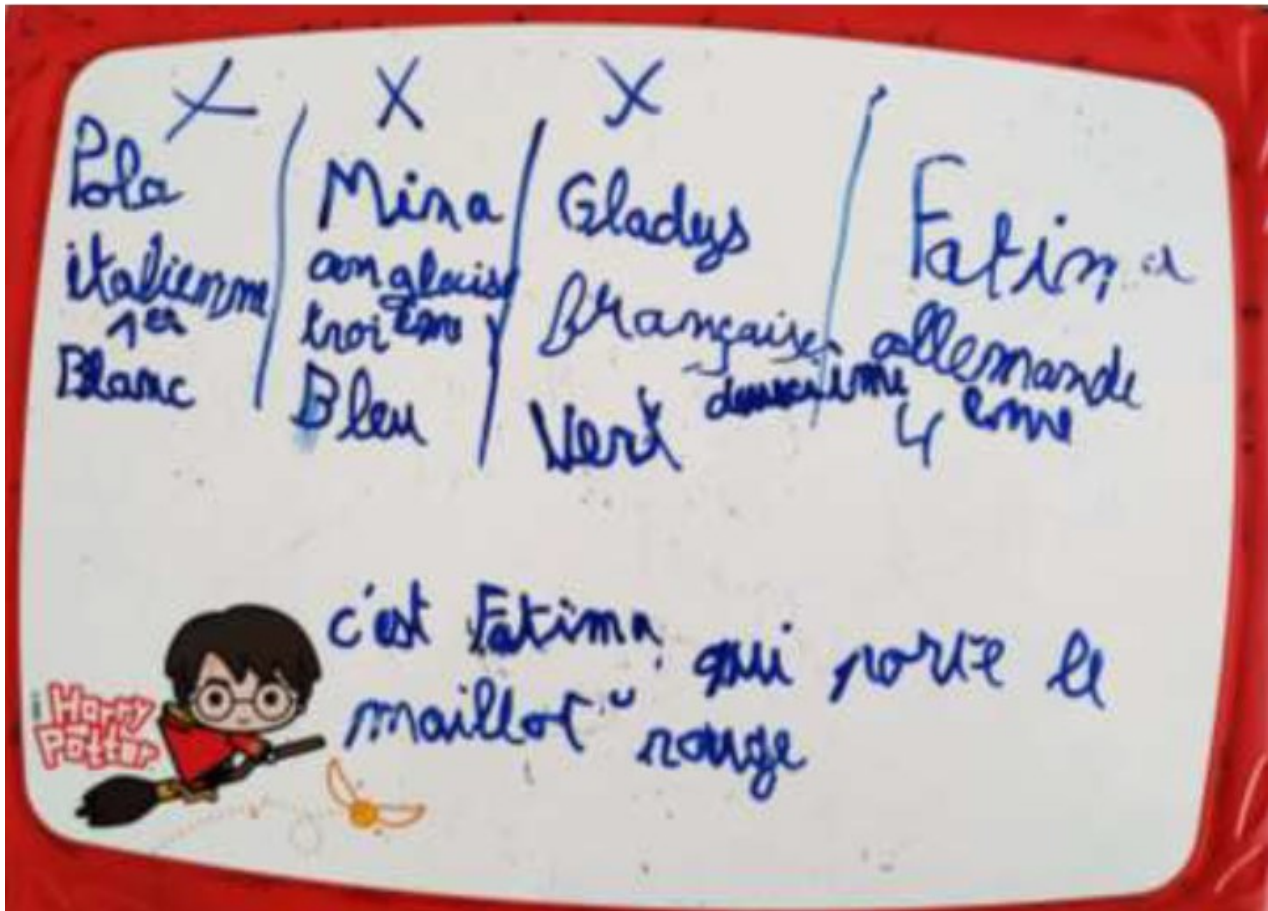 X X X
Pola
italienne
1er
Blanc
Mina
anglaise
troi eme
Bleu
Gladys
française
deuxeime
Vert
Fatima
allemande
4 eme
c'est Fatima qui porte le
maillot rouge
Harry
Potter